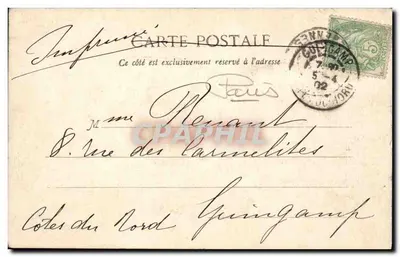 Imprimé
CARTE POSTALE
Ce côté est exclusivement réservé à l'adresse
Paris
Mme Renaut
8. rue des Carmelites
Côtes du Nord Guingamp
GUINGAMP
5
02
CPRPHOTO